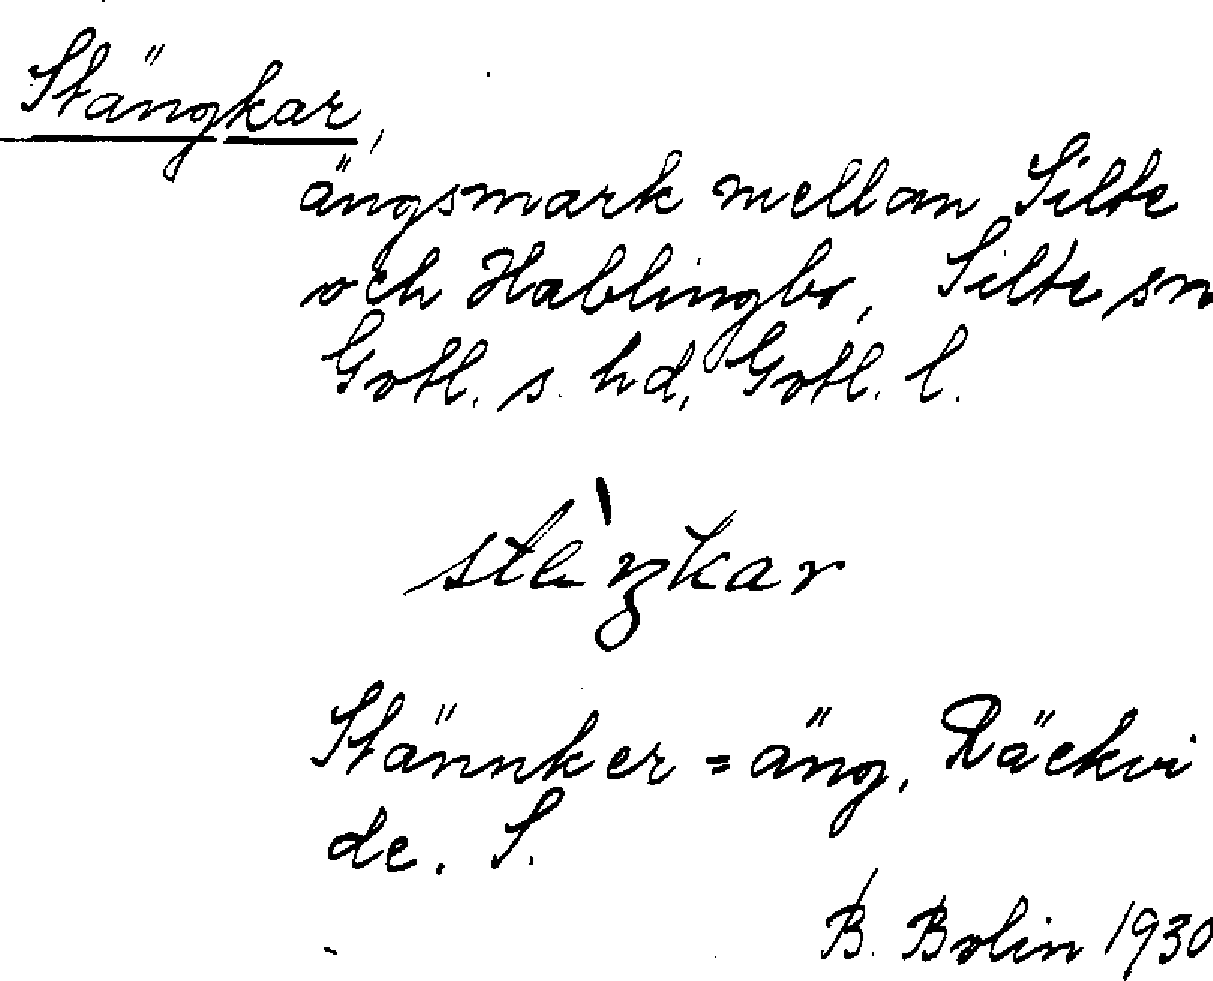 Stängkar,
ängsmark mellan Silte
och Hablingbo, Silte sn
Gotl. s. hd, Gotl. l.
Stännker = äng, Räckvi
de. S.
B. Bolin 1930